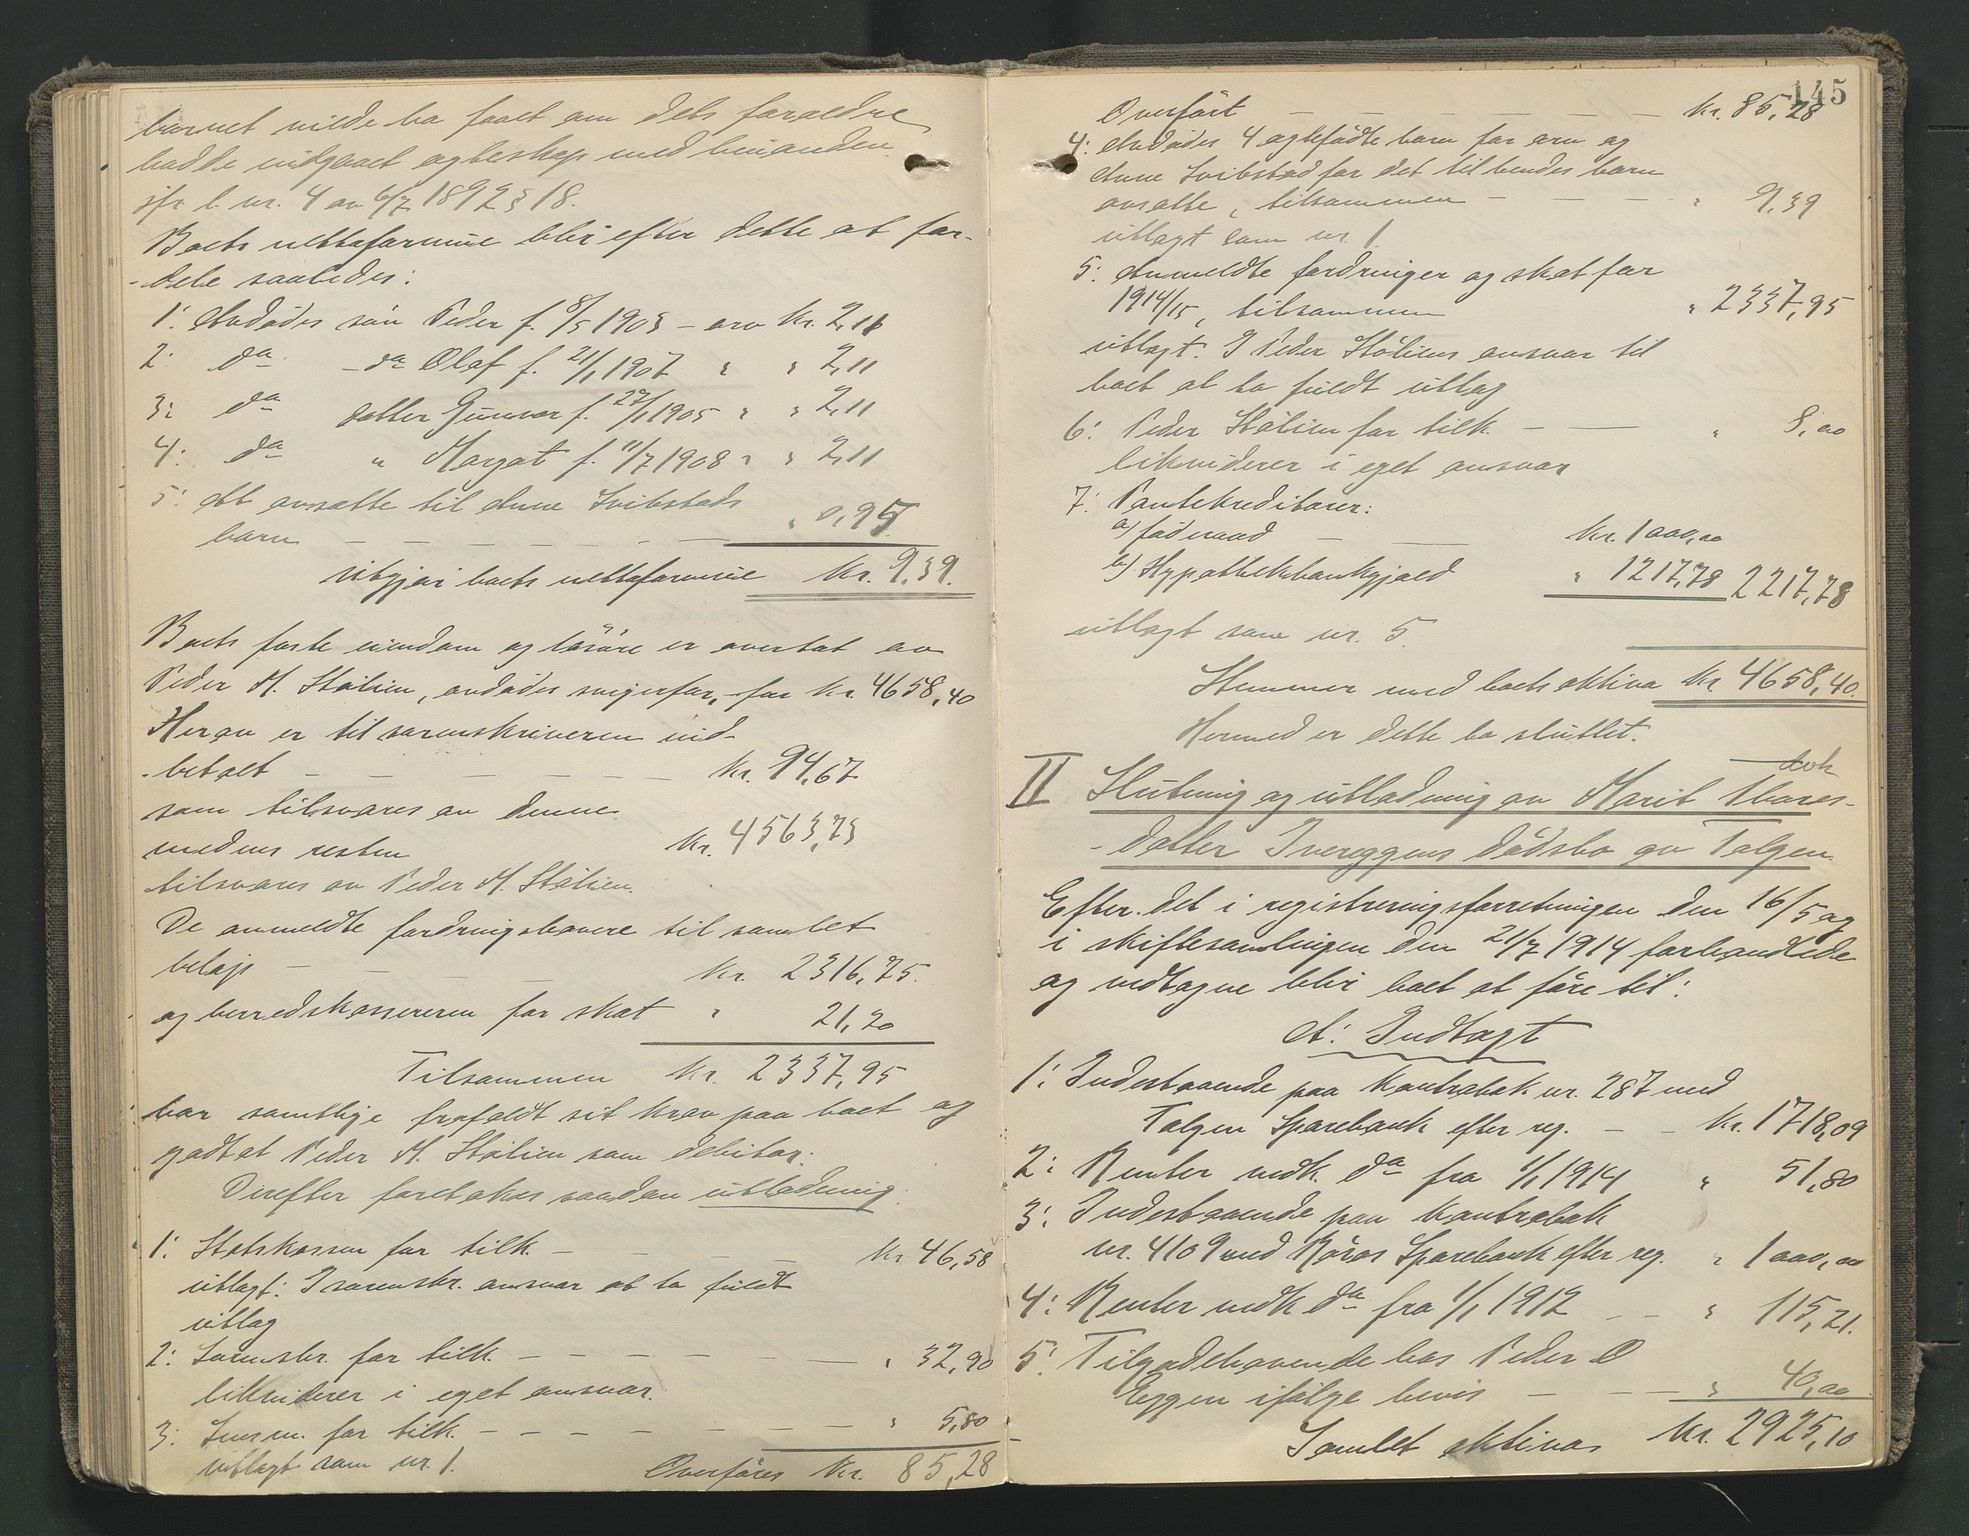 barnet vilde ha faaet om dets forældre
hadde indgaaet egteskap med hinanden
jfr l. nr. 4 av 6/7 1892 § 18.
Boets nettoformue blir efter dette at for-
-dele saaledes:
1: Avdødes søn Peder f. 8/5 1903 – arv kr. 2,11
2: do – do Olaf f. 21/1 1907 " " 2,11
3: do datter Gunvor f. 27/1 1905 " " 2,11
4: do " Margot f. 11/7 1908 " " 2,11
5: At avsætte til Anne Svibstads
barn – – – – – – " 0,95
utgjør boets nettoformue kr. 9,39.
Boets faste eiendom og løsøre er overtat av
Peder M. Stølien, avdødes svigerfar, for kr. 4658,40
Herav er til sorenskriveren ind-
-betalt – – – – – – kr. 94,67
som tilsvares av denne
medens resten kr. 4563,73
tilsvares av Peder M. Stølien.
De anmeldte fordringshavere til samlet
beløp – – – kr. 2316,75.
og herredskassereren for skat " 21,20
Tilsammen kr. 2337,95
har samtlige frafaldt sit krav paa boet og
godtat Peder M. Stølien som debitor.
Derefter foretokes saadan utlodning:
1: Statskassen for tilk. – – – – kr 46,58
utlagt: I sorenskr. ansvar at ta fuldt
utlag
2: Sorenskr. for tilk. – – – – – – " 32,90
likviderer i eget ansvar.
3: Lensm. for tilk. – – – – – – " 5,80
utlagt som nr. 1.
Overføres kr. 85,28
145
Overført – – – – – – kr. 85,28
4: Avdødes 4 egtefødte barn for arv og
Anne Svibstad for det til hendes barn
avsatte, tilsammen – – – – " 9,39
utlagt som nr. 1.
5: Anmeldte fordringer og skat for
1914/15, tilsammen " 2337,95
utlagt: I Peder Støliens ansvar til
boet at ta fuldt utlag
6: Peder Stølien for tilk. – – " 8,00
likviderer i eget ansvar
7: Pantekreditorer:
a) føderaad – – kr. 1000,00
b) Hypothekbankgjæld " 1217,78 2217,78
utlagt som nr. 5.
Stemmer med boets aktiva kr. 4658,40.
Hermed er dette bo sluttet.
II Slutning og utlodning av Marit Thores-
-datter Ivereggens dødsbo av Tolgen
Efter det i registreringsforretningen den 16/5 og
i skiftesamlingen den 21/7 1914 forhandlede
og vedtagne blir boet at føre til:
A: Indtægt
1: Indestaaende paa kontrabok nr. 287 med
Tolgen Sparebank efter reg. – – kr. 1718,09
2: Renter vedk. do fra 1/1 1914 " 51,80
3: Indestaaende paa kontrabok
nr. 4109 med Røros Sparebank efter reg. " 1000,00
4: Renter vedk do fra 1/1 1912 – – " 115,21.
5: Tilgodehavende hos Peder O
Eggen ifølge bevis – – – " 40,00
Samlet aktiva kr. 2925,10